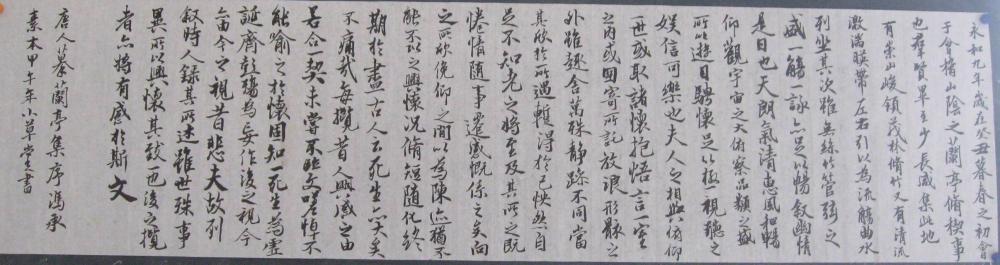 永和九年歲在癸丑暮春之初會
于會稽山陰之蘭亭脩稧事
也群賢畢至少長咸集此地
有崇山峻領茂林脩竹又有清流
激湍映帶左右引以為流觴曲水
列坐其次雖無絲竹管弦之
盛一觴一詠亦足以暢敘幽情
是日也天朗氣清惠風和暢
仰觀宇宙之大俯察品類之盛
所以遊目騁懷足以極視聽之
娛信可樂也夫人之相與俯仰
一世或取諸懷抱悟言一室
之內或因寄所託放浪形骸之
外雖趣舍萬殊靜躁不同當
其欣於所遇暫得於己怏然自
足不知老之將至及其所之既
惓情隨事遷感慨係之矣向
之所欣俛仰之間以為陳迹猶不
能不以之興懷況脩短隨化終
期於盡古人云死生亦大矣
不痛哉每攬昔人興感之由
若合一契未嘗不臨文嗟悼不
能喻之於懷固知一死生為虛
誕齊彭殤為妄作後之視今
亦由今之視昔悲夫故列
敘時人錄其所述雖世殊事
異所以興懷其致一也後之攬
者亦將有感於斯文
唐人摹蘭亭集序馮承
素本甲午年小草堂書